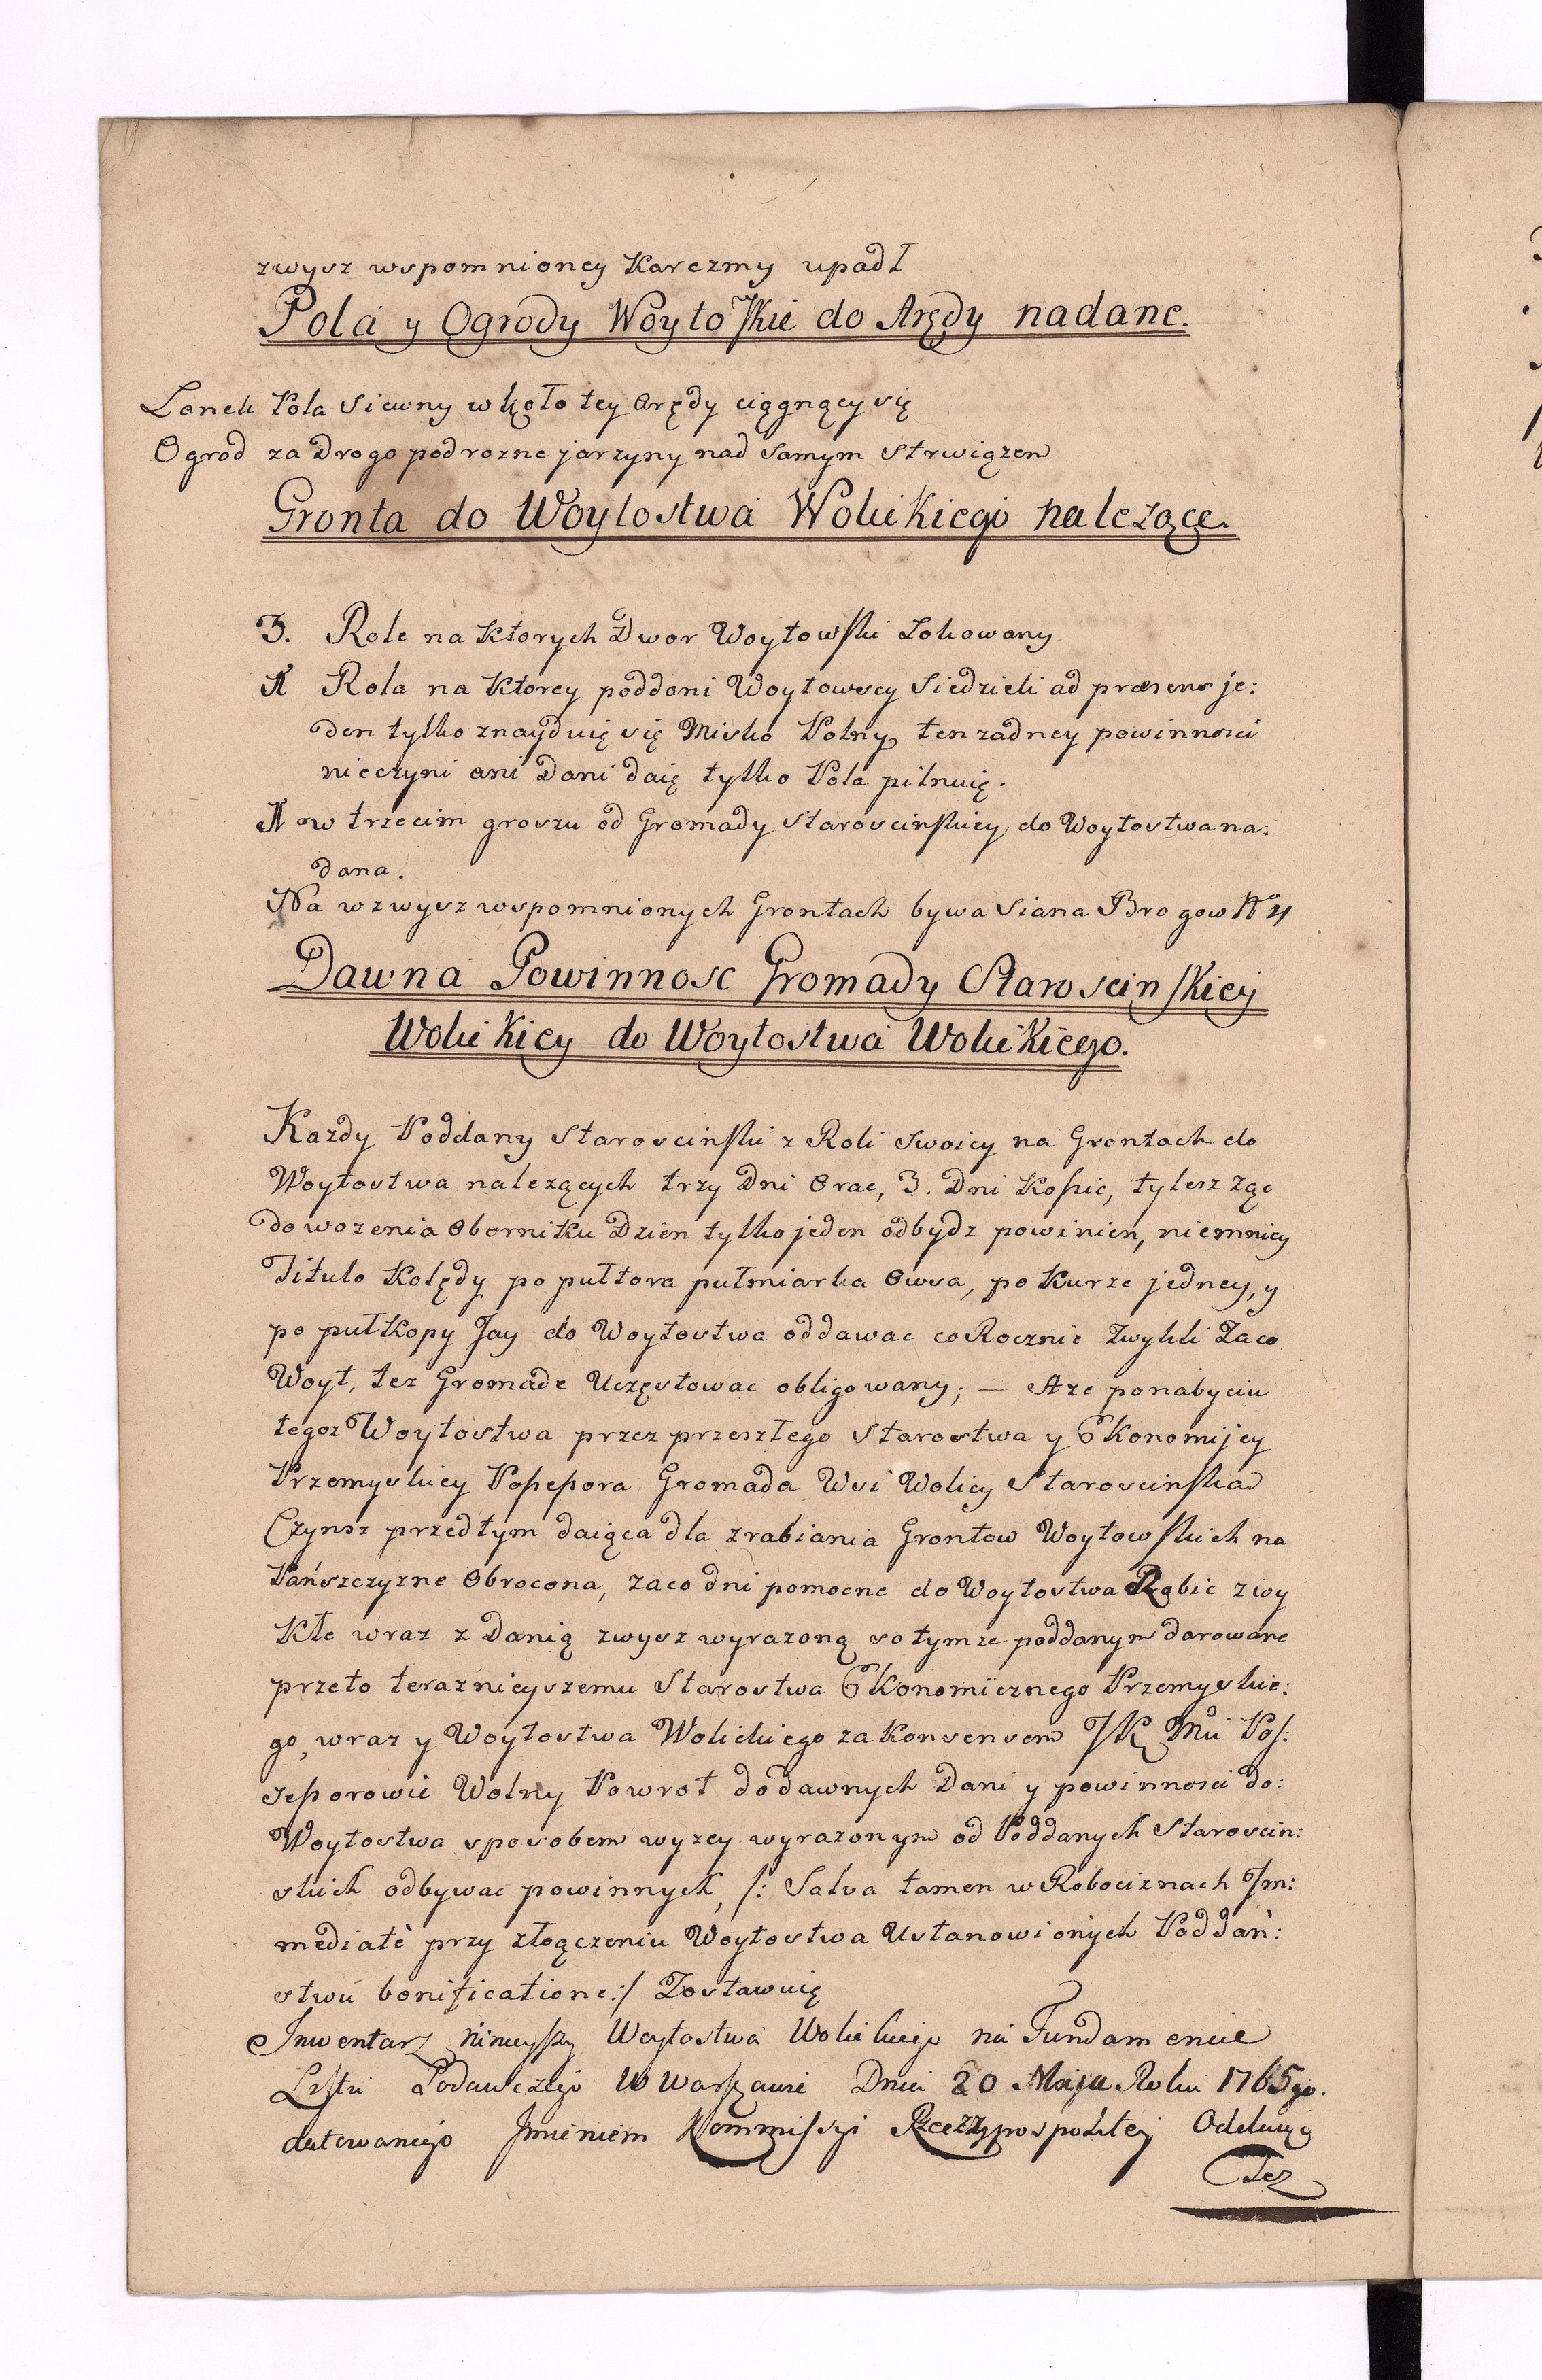 zwysz wspomnioney Karczmy upadł
Pola y Ogrody Woytoskie do Arędy nadane.
Lanek Pola Siewny w koło tey Arędy ciągnący się
Ogrod za Drogo podrozne jarzyny nad samym Strwiązem
Gronta do Woytostwa Wolickiego należące.
3. Role na Ktorych Dwor Woytowski Lokowany
1 Rola na Ktorey poddani Woytowscy Siedzieli ad præsens je:
den tylko znayduię się Misko Polny ten zadney powinnosci
nieczyni ani Dani daię tylko Pola pilnuię.
1 w trzecim groszu od Gromady Staroscinskiey do Woytostwa na:
dana.
Na wzwysz wspomnionych Grontach bywa Siana Brogow No 4
Dawna Powinnosc Gromady Staroscinskiey
Wolickiey do Woytostwa Wolickiego.
Kazdy Poddany Staroscinski z Roli Swoiey na Grontach do
Woytostwa nalezących trzy Dni Orac, 3. Dni Kosic, tylesz Ząc
do wozenia Oborniku Dzien tylko jeden odbydz powinien, niemniey
Titulo Kolędy po pułtora pułmiarka Owsa, po Kurze jedney, y
po pułkopy Jay do Woytostwa oddawac co Rocznie Zwykli Zaco
Woyt, tez Gromade Uczęstowac obligowany; — Aze ponabyciu
tegoz Woytostwa przez przeszłego Starostwa y Ekonomijey
Przemyskiey Possesora Gromada Wsi Wolicy Staroscinska
Czynsz przedtym daiąca dla zrabiania Grontow Woytowskich na
Pańszczyzne Obrocona, zaco dni pomocne do Woytostwa Robic zwy
Kłe wraz z Danią zwysz wyrazoną so tymze poddanym darowane
przeto teraznieyszemu Starostwa Ekonomicznego Przemyskie:
go, wraz y Woytostwa Wolickiego za Konsensem JK Mci Pos:
sessorowie Wolny Powrot do dawnych Dani y powinnosci do:
Woytostwa sposobem wyzey wyrazonym od Poddanych Staroscin:
skich odbywac powinnych, /: Salva tamen w Robociznach Jm:
mediatè przy złoączeniu Woytostwa Ustanowionych Poddań:
stwu bonificatione:/ Zostawuię
Inwentarz ninieyszy Woytostwa Wolickiego na Fundamencie
Listu Podawczego W Warszawie Dnia 20 Maja Roku 1765go.
datowanego Jmieniem Kommissyi Rzeczypospolitey Oddaię
Tez